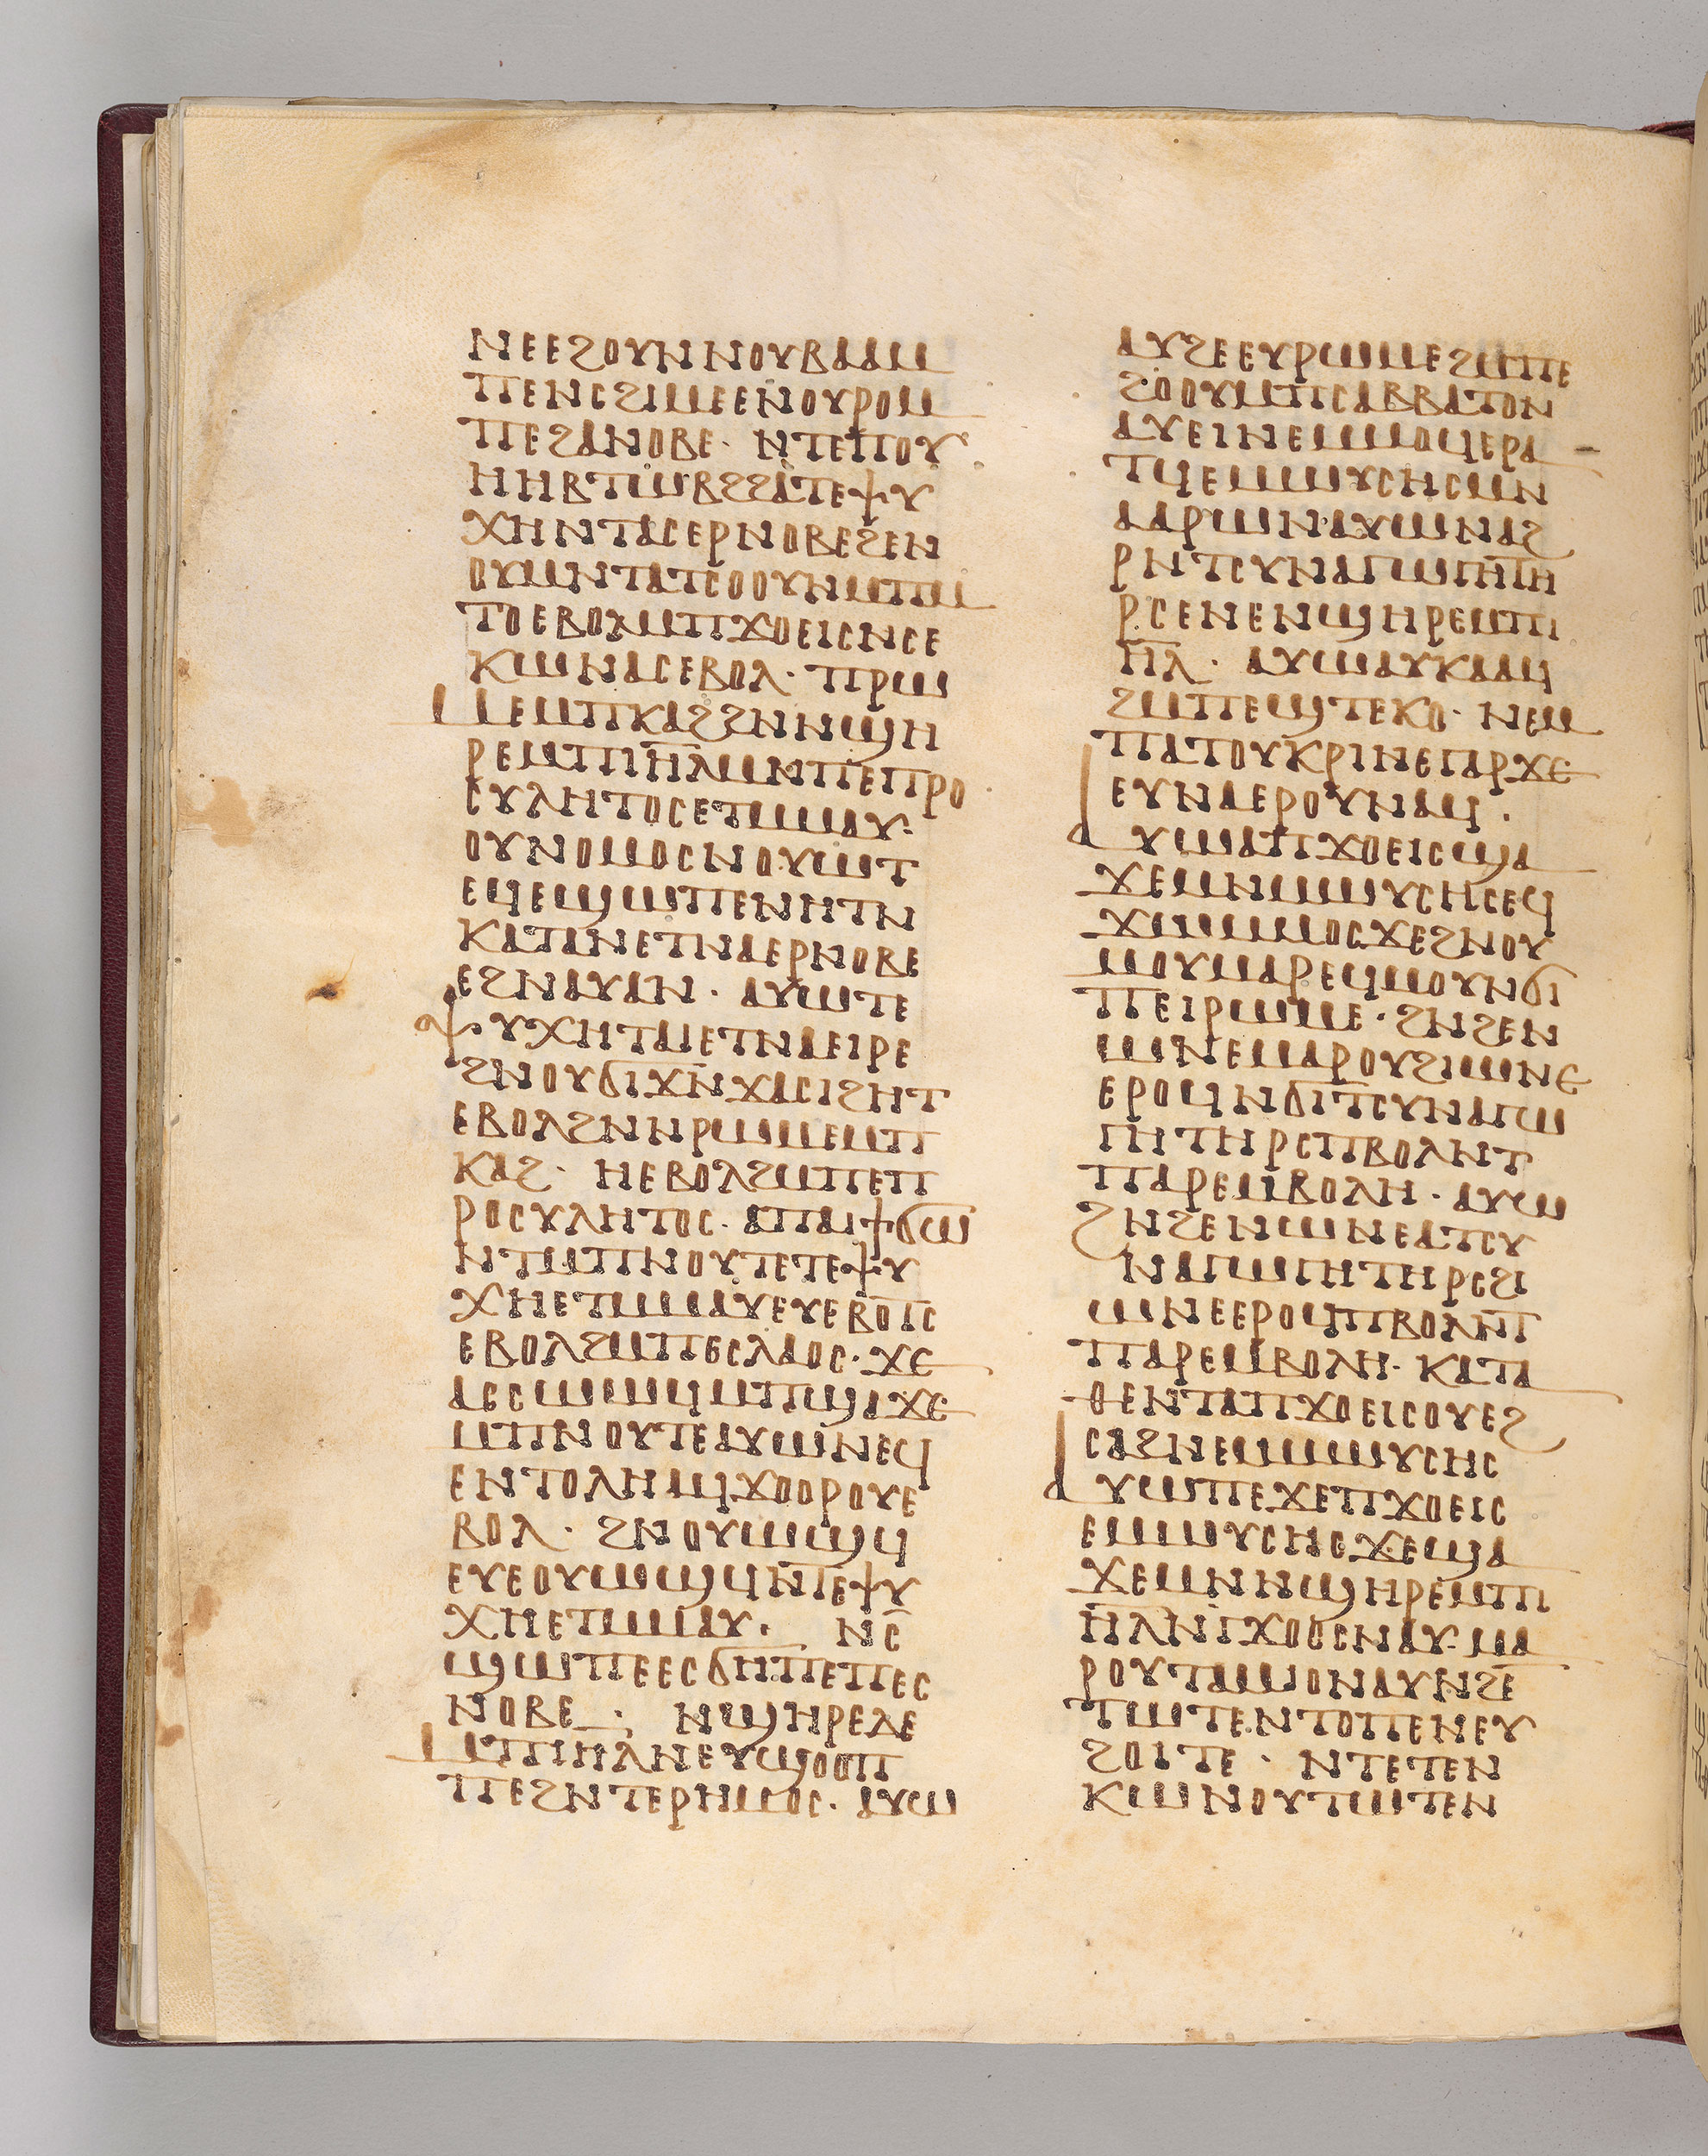 ⲛⲉⲉϩⲟⲩⲛⲛⲟⲩⲃⲁⲁⲙ
ⲡⲉⲛⲥϩⲓⲙⲉⲉⲛⲟⲩⲣⲟⲙ
ⲡⲉϩⲁⲛⲟⲃⲉ· ⲛⲧⲉⲡⲟⲩ
ⲏⲏⲃⲧⲱⲃϩϩⲁⲧⲉⲯⲩ
ⲭⲏⲛⲧⲁⲥⲉⲣⲛⲟⲃⲉϩⲉⲛ
ⲟⲩⲙⲛⲧⲁⲧⲥⲟⲟⲩⲛⲙⲡⲙ
ⲧⲟⲉⲃⲟⲗⲙⲡϫⲟⲉⲓⲥⲛⲥⲉ
ⲕⲱⲛⲁⲥⲉⲃⲟⲗ· ⲡⲣⲱ
ⲙⲉⲙⲡⲕⲁϩϩⲛⲛϣⲏ
ⲣⲉⲙⲡⲓⲏ̅ⲗ̅ⲙⲛⲡⲉⲡⲣⲟ
ⲥⲩⲗⲏⲧⲟⲥⲉⲧⲙⲙⲁⲩ·
ⲟⲩⲛⲟⲙⲟⲥⲛⲟⲩⲱⲧ
ⲉϥⲉϣⲱⲡⲉⲛⲏⲧⲛ
ⲕⲁⲧⲁⲛⲉⲧⲛⲁⲉⲣⲛⲟⲃⲉ
ⲉϩⲛⲁⲩⲁⲛ· ⲁⲩⲱⲧⲉ
ⲯⲩⲭⲏⲧⲁⲓⲉⲧⲛⲁⲉⲓⲣⲉ
ϩⲛⲟⲩϭⲓϫⲛϫⲁⲥⲓϩⲏⲧ
ⲉⲃⲟⲗϩⲛⲛⲣⲱⲙⲉⲙⲡ
ⲕⲁϩ· ⲏⲉⲃⲟⲗϩⲙⲡⲉⲡ
ⲣⲟⲥⲩⲗⲏⲧⲟⲥ· ⲁⲡⲁⲓϯϭⲱ
ⲛⲧⲙⲡⲛⲟⲩⲧⲉⲧⲉⲯⲩ
ⲭⲏⲉⲧⲙⲙⲁⲩⲉⲩⲉⲃⲟⲧⲥ
ⲉⲃⲟⲗϩⲙⲡⲉⲥⲗⲁⲟⲥ· ϫⲉ
ⲁⲥⲥⲱϣϥⲙⲡϣⲁϫⲉ
ⲙⲡⲛⲟⲩⲧⲉⲁⲩⲱⲛⲉϥ
ⲉⲛⲧⲟⲗⲏⲁϥϫⲟⲟⲣⲟⲩⲉ
ⲃⲟⲗ· ϩⲛⲟⲩⲱϣϥ
ⲉⲩⲉⲟⲩⲱϣϥⲛⲧⲉⲯⲩ
ⲭⲏⲉⲧⲙⲙⲁⲩ· ⲛⲥ̅
ϣⲱⲡⲉⲉⲥϭⲏⲡⲉⲡⲉⲥ
ⲛⲟⲃⲉ· ⲛϣⲏⲣⲉⲇⲉ
ⲙⲡⲓⲏⲗⲛⲉⲩϣⲟⲟⲡ
ⲡⲉϩⲛⲧⲉⲣⲏⲙⲟⲥ· ⲁⲩⲱ
ⲁⲩϩⲉⲉⲩⲣⲱⲙⲉϩⲙⲡⲉ
ϩⲟⲟⲩⲙⲡⲥⲁⲃⲃⲁⲧⲟⲛ
ⲁⲩⲉⲓⲛⲉⲙⲙⲟϥⲉⲣⲁ
ⲧϥⲉⲙⲱⲩⲥⲏⲥⲙⲛ
ⲁⲁⲣⲱⲛ·ⲁⲩⲱⲛⲁϩ
ⲣⲛⲧⲥⲩⲛⲁⲅⲱⲅⲏⲧⲏ
ⲣⲥⲉⲛⲉⲛϣⲏⲣⲉⲙⲡⲓ
ⲏ̅ⲗ̅· ⲁⲩⲱⲁⲩⲕⲁⲁϥ
ϩⲙⲡⲉϣⲧⲉⲕⲟ· ⲛⲉⲙ
ⲡⲁⲧⲟⲩⲕⲣⲓⲛⲉⲅⲁⲣϫⲉ
ⲉⲩⲛⲁⲉⲣⲟⲩⲛⲁϥ·
ⲁⲩⲱⲁⲡϫⲟⲉⲓⲥϣⲁ
ϫⲉⲙⲛⲙⲱⲩⲥⲏⲥⲉϥ
ϫⲱⲙⲙⲟⲥϫⲉϩⲛⲟⲩ
ⲙⲟⲩⲙⲁⲣⲉϥⲙⲟⲩⲛϭⲓ
ⲡⲉⲓⲣⲱⲙⲉ· ϩⲛϩⲉⲛ
ⲱⲛⲉⲙⲁⲣⲟⲩϩⲓⲱⲛⲉ
ⲉⲣⲟϥⲛϭⲓⲧⲥⲩⲛⲁⲅⲱ
ⲅⲏⲧⲏⲣⲥⲡⲃⲟⲗⲛⲧ
ⲡⲁⲣⲉⲙⲃⲟⲗⲏ· ⲁⲩⲱ
ϩⲛϩⲉⲛⲱⲛⲉⲁⲧⲥⲩ
ⲛⲁⲅⲱⲅⲏⲧⲏⲣⲥϩⲓ
ⲱⲛⲉⲉⲣⲟϥⲡⲃⲟⲗⲛⲧ
ⲡⲁⲣⲉⲙⲃⲟⲗⲏ· ⲕⲁⲧⲁ
ⲑⲉⲛⲧⲁⲡϫⲟⲉⲓⲥⲟⲩⲉϩ
ⲥⲁϩⲛⲉⲙⲙⲱⲩⲥⲏⲥ
ⲁⲩⲱⲡⲉϫⲉⲡϫⲟⲉⲓⲥ
ⲉⲙⲱⲩⲥⲏⲥϫⲉϣⲁ
ϫⲉⲙⲛⲛϣⲏⲣⲉⲙⲡⲓ
ⲏ̅ⲗ̅ⲛⲅϫⲟⲟⲥⲛⲁⲩ·ⲙⲁ
ⲣⲟⲩⲧⲁⲙⲓⲟⲛⲁⲩⲛϩⲉ
ⲧⲱⲧⲉⲛⲧⲟⲡⲉⲛⲉⲩ
ϩⲟⲓⲧⲉ· ⲛⲧⲉⲧⲉⲛ
ⲕⲱⲛⲟⲩⲧⲱⲧⲉⲛ